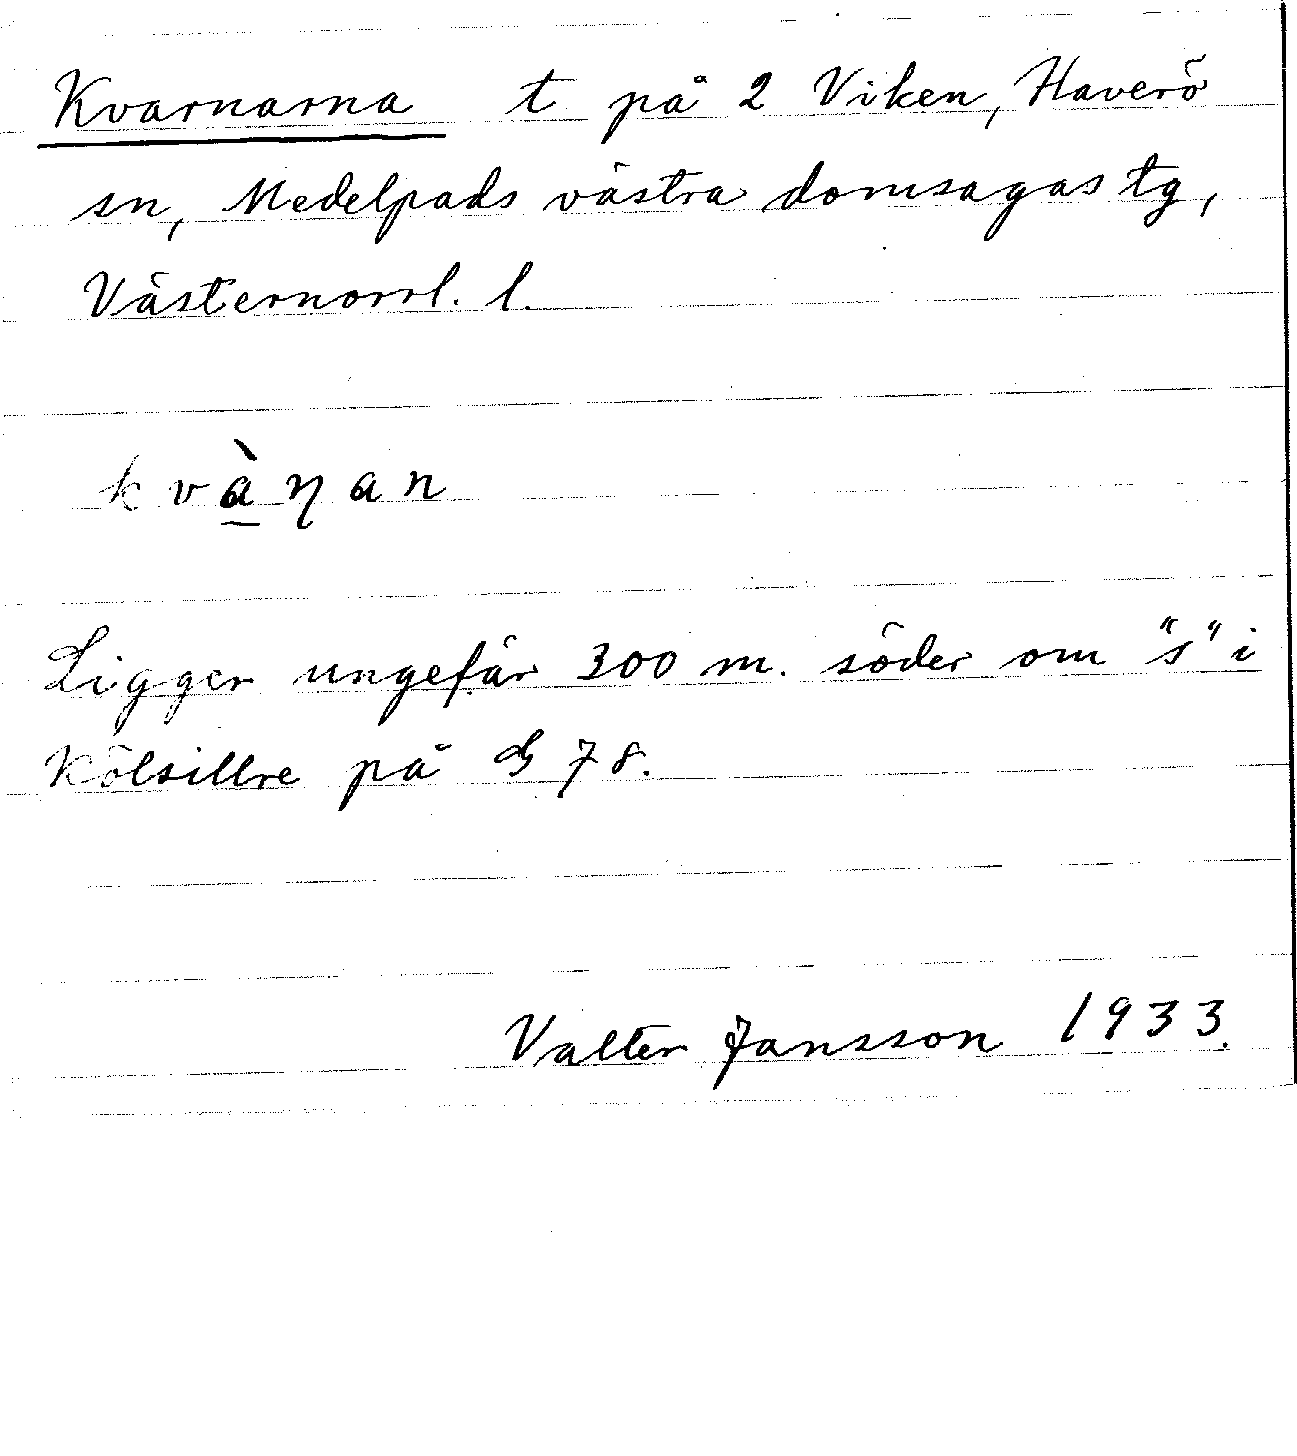 Kvarnarna t på 2 Viken, Haverö
sn, Medelpads västra domsagas tg,
Västernorrl. l.
kvànan
Ligger ungefär 300 m. söder om "s" i
Kölsillre på G 78.
Valter Jansson 1933.